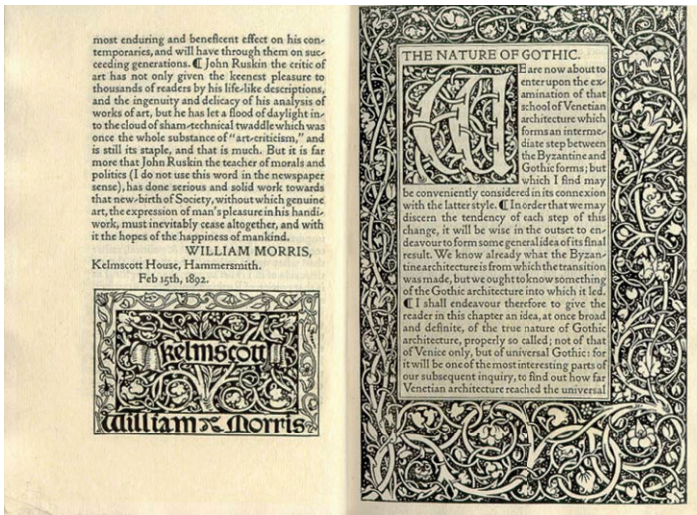 most enduring and beneficent effect on his con-
temporaries, and will have through them on suc-
ceeding generations. ¶ John Ruskin the critic of
art has not only given the keenest pleasure to
thousands of readers by his life-like descriptions,
and the ingenuity and delicacy of his analysis of
works of art, but he has let a flood of daylight in-
to the cloud of sham-technical twaddle which was
once the whole substance of "art-criticism," and
is still its staple, and that is much. But it is far
more that John Ruskin the teacher of morals and
politics (I do not use this word in the newspaper
sense), has done serious and solid work towards
that new-birth of Society, without which genuine
art, the expression of man's pleasure in his handi-
work, must inevitably cease altogether, and with
it the hopes of the happiness of mankind.
WILLIAM MORRIS,
Kelmscott House, Hammersmith.
Feb 15th, 1892.
kelmscott
William Morris
THE NATURE OF GOTHIC.
WE are now about to
enter upon the ex-
amination of that
school of Venetian
architecture which
forms an interme-
diate step between
the Byzantine and
Gothic forms; but
which I find may
be conveniently considered in its connexion
with the latter style. ¶ In order that we may
discern the tendency of each step of this
change, it will be wise in the outset to en-
deavour to form some general idea of its final
result. We know already what the Byzan-
tine architecture is from which the transition
was made, but we ought to know something
of the Gothic architecture into which it led.
¶ I shall endeavour therefore to give the
reader in this chapter an idea, at once broad
and definite, of the true nature of Gothic
architecture, properly so called; not of that
of Venice only, but of universal Gothic: for
it will be one of the most interesting parts of
our subsequent inquiry, to find out how far
Venetian architecture reached the universal